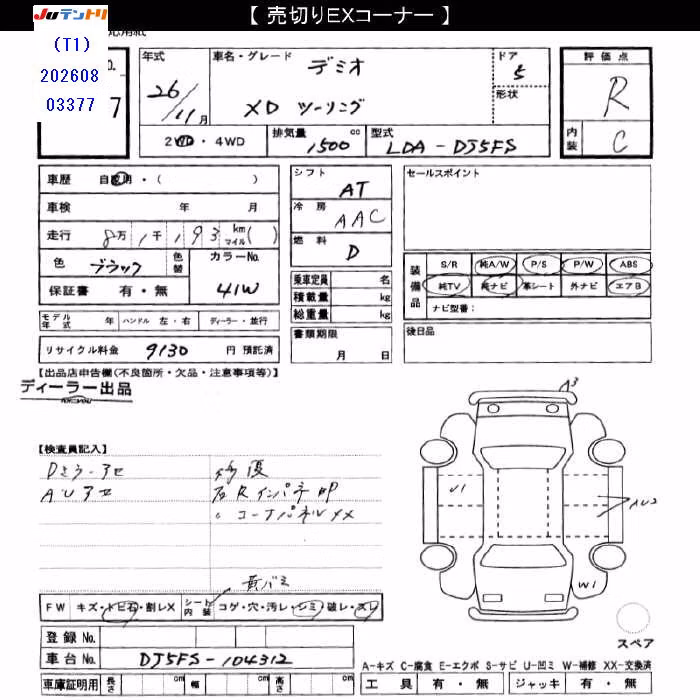 【 売切りEXコーナー 】
JUテントリ
(T1)
202608
03377
年式
車名・グレード
ドア
評価点
26/11月
デミオ
5
R
XD ツーリング
形状
2WD・4WD
排気量
1500 cc
型式
LDA-DJ5FS
内装
C
車歴
自家用・( )
シフト
AT
セールスポイント
車検 年 月
冷房
AAC
走行
8万1千193
km マイル( )
燃料
D
色
ブラック
色替
カラーNo.
41W
保証書 有・無
乗車定員 名
積載量 kg
総重量 kg
装備品
S/R
純A/W
P/S
P/W
ABS
純TV
純ナビ
革シート
外ナビ
エアB
ナビ型番:
モデル年式 年
ハンドル 左・右
ディーラー・並行
書類期限
月 日
後日品
リサイクル料金 9130 円 預託済
【出品店申告欄(不良箇所・欠品・注意事項等)】
ディーラー出品
【検査員記入】
AUアセ
右Rインパネ
コーナパネルXX
A3
U1
AU2
W1
FW キズ・トビ石・割レX
シート内装
コゲ・穴・汚レ・シミ・破レ・スレ
登録 No.
車台 No. DJ5FS-104312
スペア
A-キズ C-腐食 E-エクボ S-サビ U-凹ミ W-補修 XX-交換済
車庫証明用
長さ cm
幅 cm
高さ cm
工具 有・無
ジャッキ 有・無